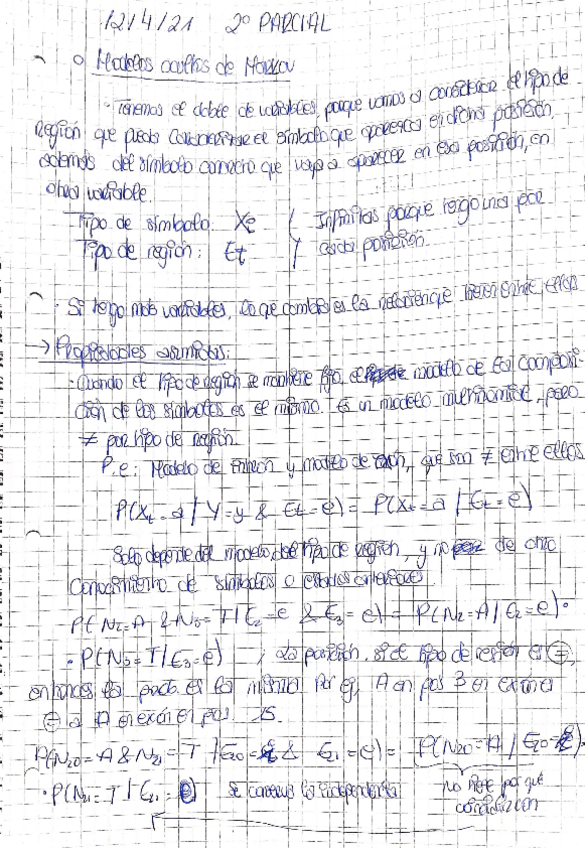 12/4/21 2º PARCIAL
○ Modelos ocultos de Markov
· Tenemos el doble de variables, porque vamos a considerar el tipo de
región que pueda caracterizar el símbolo que aparezca en dicha posición,
además del símbolo concreto que vaya a aparecer en esa posición, en
otra variable.
Tipo de símbolo: Xt Infinitas porque tengo una por
Tipo de región: Et cada posición.
· Si tengo más variables, lo que cambia es la que tienen entre ellas
→ Propiedades asumidas:
· Cuando el tipo de región se mantiene fijo, el modelo de la composi-
ción de los símbolos es el mismo. Es un modelo multinomial, pero
≠ por tipo de región.
P.e: Modelo de intrón y modelo de exón, que son ≠ entre ellos
P(Xt=a / Y=y & Et=e) = P(Xt=a / Et=e)
Solo depende del modelo del tipo de región, y no de otro
conocimiento de símbolos o estados anteriores
P(N2=A & N3=T / E2=e & E3=e) = P(N2=A / E2=e) ·
· P(N3=T / E3=e) ; posición. si el tipo de región es =,
entonces la prob. es la misma. Por ej, A en pos 3 en exón es
= a A en exón en pos 15.
P(N20=A & N21=T / E20= & E21=e) = P(N20=A / E20= ) ·
· P(N21=T / E21=e) se conserva la independencia No tiene por qué